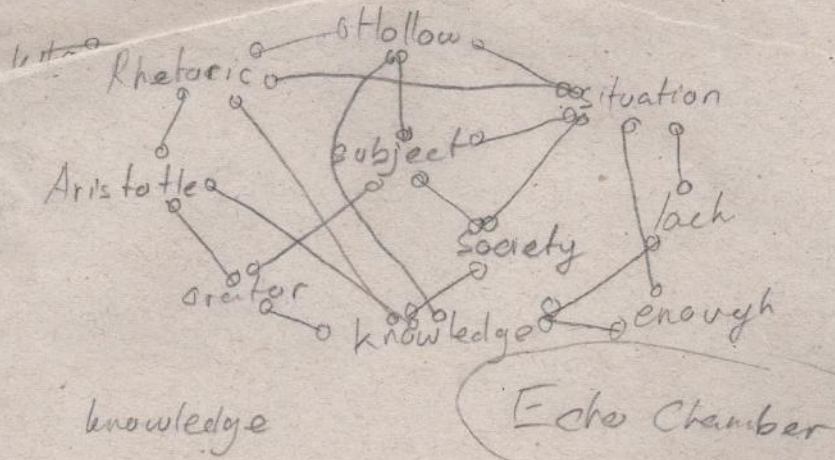 Hollow
Rhetoric
situation
subject
Aristotle
lach
society
orator
enough
knowledge
knowledge
Echo Chamber